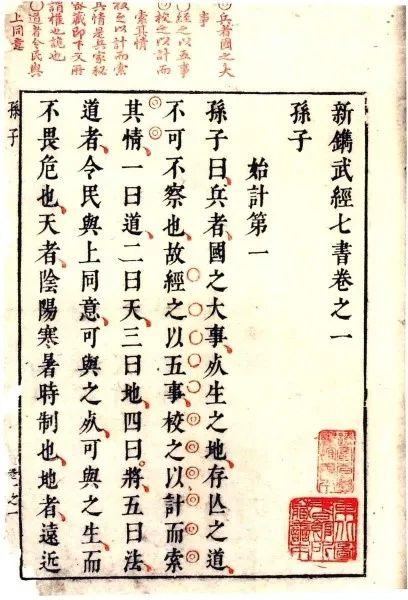 兵者國之大
事
經之以五事
校之以計而
索其情
校之以計而索
其情是兵家秘
密藏即下文所
謂權也詭也
道者令民與
上同意
新鐫武經七書卷之一
孫子
始計第一
孫子曰兵者國之大事𣦸生之地存亾之道
不可不察也故經之以五事校之以計而索
其情一曰道二曰天三曰地四曰將五曰法
道者令民與上同意可與之𣦸可與之生而
不畏危也天者陰陽寒暑時制也地者遠近
孫子
卷之一